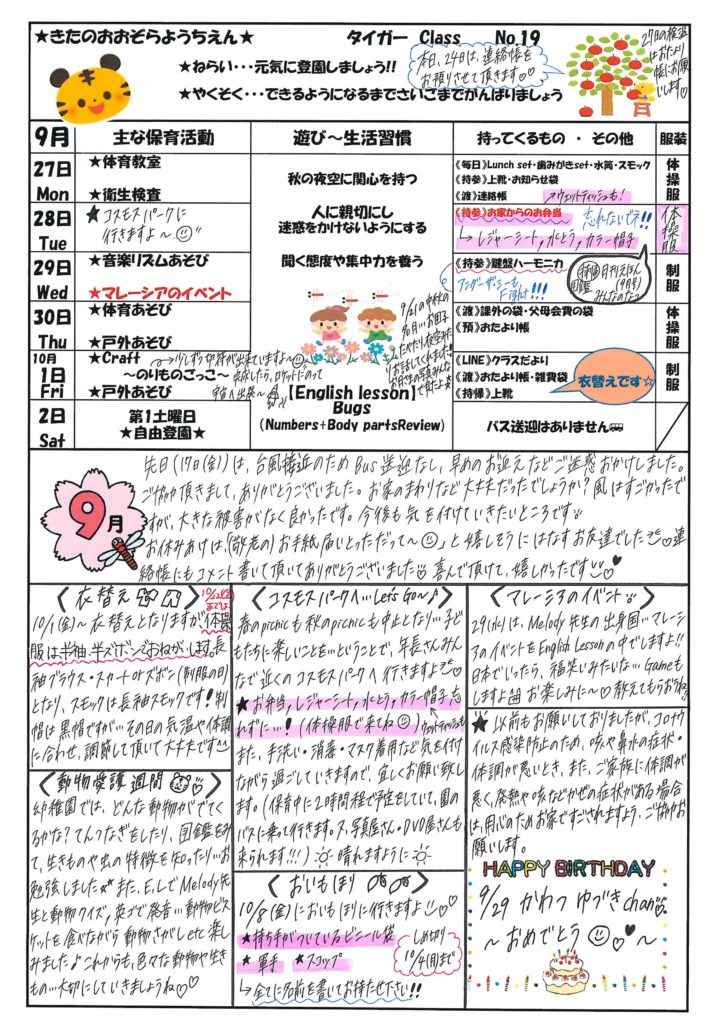 ★きたのおおぞらようちえん★
タイガー Class No.19
★ねらい・・・元気に登園しましょう!!
★やくそく・・・できるようになるまでさいごまでがんばりましょう
本日、24日は、連絡帳を
お預りさせて頂きます♡♡
9月
主な保育活動
遊び～生活習慣
持ってくるもの ・ その他
服装
27日
Mon
★体育教室
★衛生検査
28日
Tue
★コスモスパークに
行きますよ～
29日
Wed
★音楽リズムあそび
★マレーシアのイベント
30日
Thu
★体育あそび
★戸外あそび
10月
1日
Fri
★Craft
～のりものごっこ～
★戸外あそび
2日
Sat
第1土曜日
★自由登園★
秋の夜空に関心を持つ
人に親切にし
迷惑をかけないようにする
聞く態度や集中力を養う
【English lesson】
Bugs
(Numbers+Body partsReview)
《毎日》Lunch set・歯みがきset・水筒・スモック
《持参》上靴・お知らせ袋
《渡》連絡帳
ウェットティッシュも!
体操服
《持参》お家からのお弁当
忘れないでネ!!
↳レジャーシート,水とう,カラー帽子
体操服
《持参》鍵盤ハーモニカ
制服
《渡》課外の袋・父母会費の袋
《預》おたより帳
体操服
《LINE》クラスだより
《渡》おたより帳・雑費袋
《持帰》上靴
衣替えです☆
制服
バス送迎はありません
9月
先日(17日(金))は、台風接近のためBus送迎なし、早めのお迎えなどご迷惑おかけしました。
ご協力頂きまして、ありがとうございました。お家のまわりなど大丈夫だったでしょうか?風はすごかったで
すが、大きな被害がなく良かったです。今後も気を付けていきたいところです
お休みあけは、「(敬老の)お手紙届いとっただって～」と嬉しそうにはなすお友達でした♡連
絡帳にもコメント書いて頂いてありがとうございました 喜んで頂けて、嬉しかったです♡♥
〈衣替え〉
10/1(金)～衣替えとなりますが、体操
服は半袖、半ズボンでおねがいします。長
袖ブラウス・スカートorズボン(制服の日)
となり、スモックは長袖スモックです!制
帽は黒帽ですが…その日の気温や体調
に合わせ、調節して頂いて大丈夫です^^
〈動物愛護週間〉
幼稚園では、どんな動物がでてく
るかな?てんつなぎをしたり、図鑑をみ
て、生きものや虫の特徴を知ったり…お
勉強しました★★また、E.LでMelody先
生と動物クイズ,英ごで発音…動物ビス
ケットを食べながら動物さがしetc楽し
みました♪これからも、色々な動物や生き
もの…大切にしていきましょうね♡♡
〈コスモスパークへ…Let's Go～♪〉
春のpicnicも秋のpicnicも中止となり…子ど
もたちに楽しいことを…ということで、年長さんみん
なで近くのコスモスパークへ行きますよ
★お弁当,レジャーシート,水とう,カラー帽子忘
れずに…!(体操服で来てね)ウェットティッシュも
また、手洗い・消毒・マスク着用など気を付け
ながら過ごしていきますので、宜しくお願い致し
ます。(保育中に2時間程で予定をしていて、園の
バスに乗って行きます。ス,写真屋さん・DVD屋さんも
来られます!!!)晴れますように
〈おいもほり〉
10/8(金)においもほりに行きますよ♡
★持ち手がついているビニール袋
★軍手 ★スコップ
しめ切り
10/4(月)まで
↳全てに名前を書いてお持たせ下さい!!
〈マレーシアのイベント〉
29(水)は、Melody先生の出身国…マレーシ
アのイベントをEnglish Lessonの中でしますよ!!
日本でいったら、福笑いみたいな…Gameも
しますよ お楽しみに～♡教えてもらおうね
★以前もお願いしておりましたが、コロナウ
イルス感染防止のため、咳や鼻水の症状・
体調が悪いとき、また、ご家族に体調が
悪く、発熱や咳などかぜの症状がある場合
は、用心のためお家ですごされますよう、ご協力お
願いします。
HAPPY BiRTHDAY
9/29 かわつ ゆづきchan♡
～おめでとう♡♥～